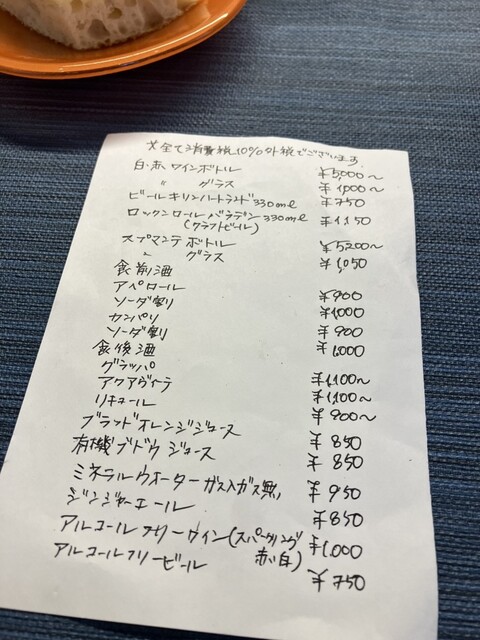 ※全て消費税10%外税でございます
白・赤 ワインボトル ¥5,000〜
〃 グラス ¥1,000〜
ビール キリンハートランド330ml ¥750
ロックンロール バラデン330ml ¥1,150
(クラフトビール)
スプマンテ ボトル ¥5,200〜
〃 グラス ¥1,050
食前酒
アペロール ¥900
ソーダ割り ¥1,000
カンパリ ¥900
ソーダ割り ¥1,000
食後酒
グラッパ ¥1,100〜
アクアヴィーテ ¥1,100〜
リキュール ¥900〜
ブラッドオレンジジュース ¥850
有機ブドウジュース ¥850
ミネラルウオーター ガス入ガス無 ¥950
ジンジャーエール ¥850
アルコールフリーワイン(スパークリング ¥1,000
赤・白)
アルコールフリービール ¥750